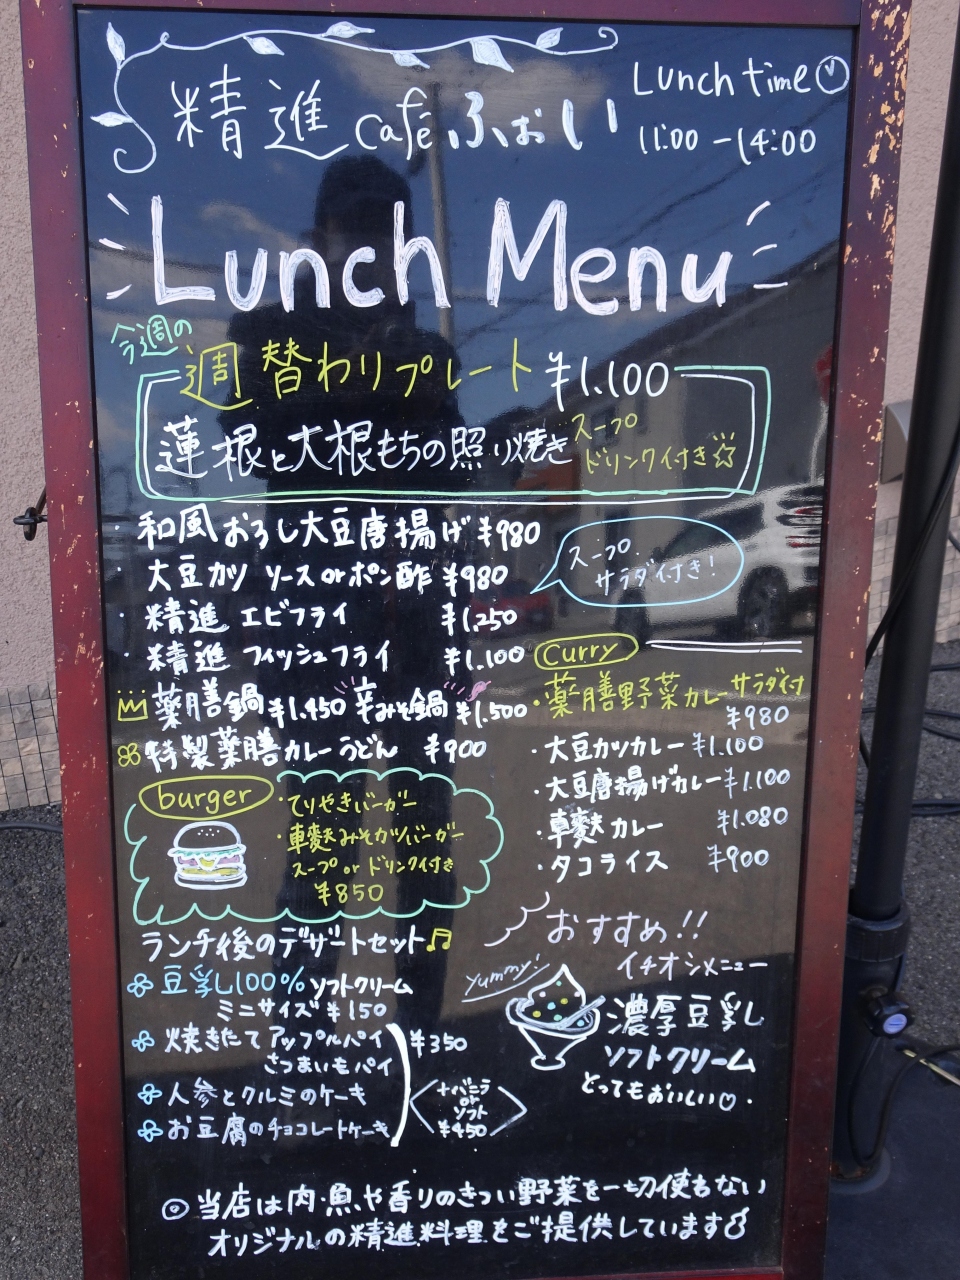 精進 café ふぉい
Lunch time
11:00 - 14:00
Lunch Menu
今週の
週替わりプレート ¥1.100
蓮根と大根もちの照り焼き
スープ
ドリンク付き☆
・和風おろし大豆唐揚げ ¥980
・大豆カツ ソースorポン酢 ¥980
・精進 エビフライ ¥1,250
・精進 フィッシュフライ ¥1,100
スープ
サラダ付き!
薬膳鍋 ¥1.450 辛みそ鍋 ¥1.500
特製薬膳カレーうどん ¥900
curry
・薬膳野菜カレー サラダ付
¥980
・大豆カツカレー ¥1.100
・大豆唐揚げカレー ¥1.100
・車麩カレー ¥1.080
・タコライス ¥900
burger
・てりやきバーガー
・車麩みそカツバーガー
スープ or ドリンク付き
¥850
ランチ後のデザートセット♫
豆乳100% ソフトクリーム
ミニサイズ ¥150
焼きたてアップルパイ
さつまいもパイ
人参とクルミのケーキ
お豆腐のチョコレートケーキ
¥350
+バニラ
or
ソフト
¥450
おすすめ!!
イチオシメニュー
yummy!
濃厚豆乳
ソフトクリーム
とってもおいしい♡
◎当店は肉・魚や香りのきつい野菜を一切使わない
オリジナルの精進料理をご提供しています